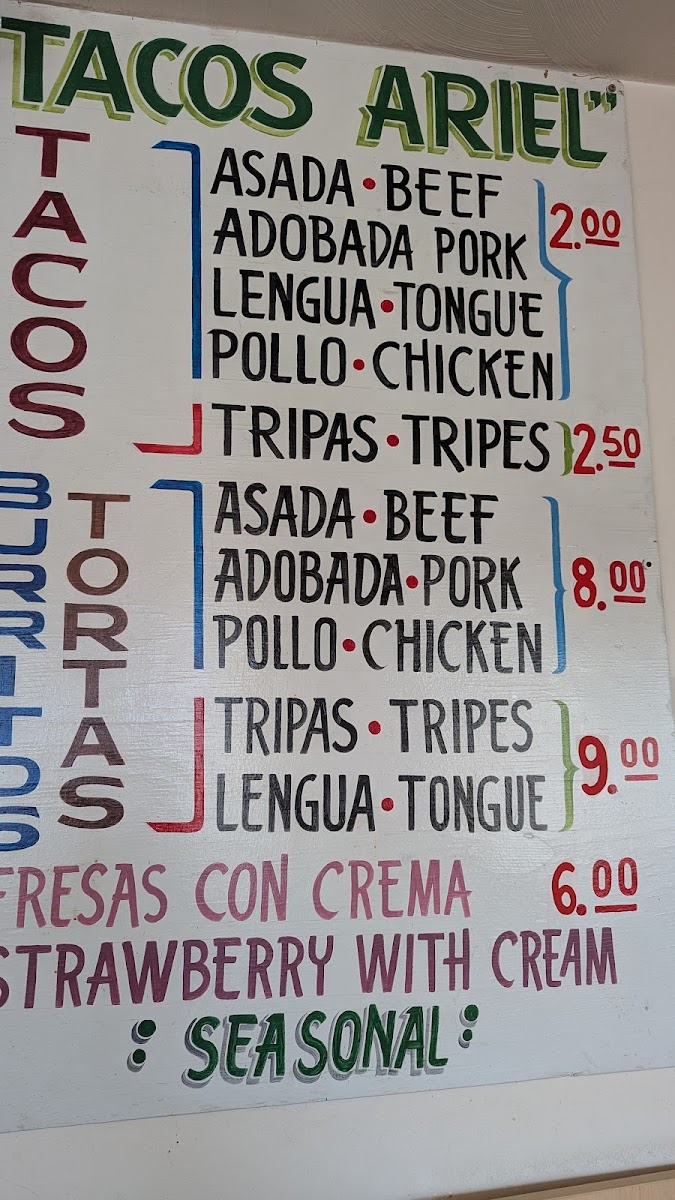 TACOS ARIEL"
TACOS
ASADA • BEEF
ADOBADA PORK
LENGUA • TONGUE
POLLO • CHICKEN
2.00
TRIPAS • TRIPES
2.50
BURRITOS
TORTAS
ASADA • BEEF
ADOBADA • PORK
POLLO • CHICKEN
8.00
TRIPAS • TRIPES
LENGUA • TONGUE
9.00
FRESAS CON CREMA 6.00
STRAWBERRY WITH CREAM
: SEASONAL :